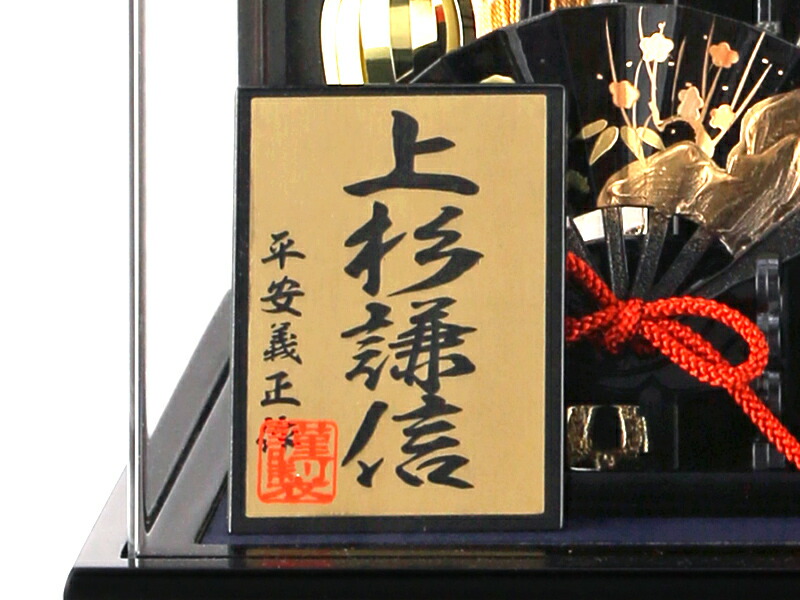 上杉謙信
平安義正
謹製